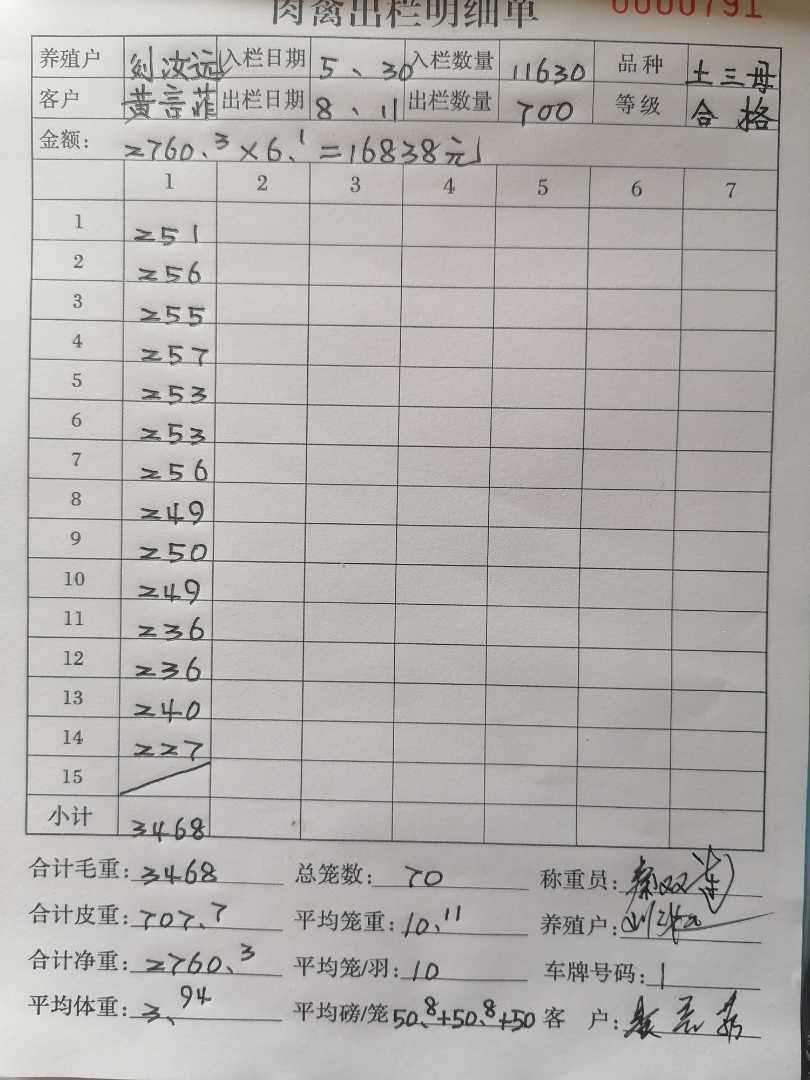 肉禽出栏明细单 0000791
养殖户 刘汝远 入栏日期 5、30 入栏数量 11630 品种 土三母
客户 黄言菲 出栏日期 8、11 出栏数量 700 等级 合格
金额: 2760.3×6.1=16838元
1 2 3 4 5 6 7
1 251
2 256
3 255
4 257
5 253
6 253
7 256
8 249
9 250
10 249
11 236
12 236
13 240
14 227
15
小计 3468
合计毛重: 3468 总笼数: 70 称重员:
合计皮重: 707.7 平均笼重: 10.11 养殖户:
合计净重: 2760.3 平均笼/羽: 10 车牌号码: 1
平均体重: 3.94 平均磅/笼 50.8+50.8+50 客 户: